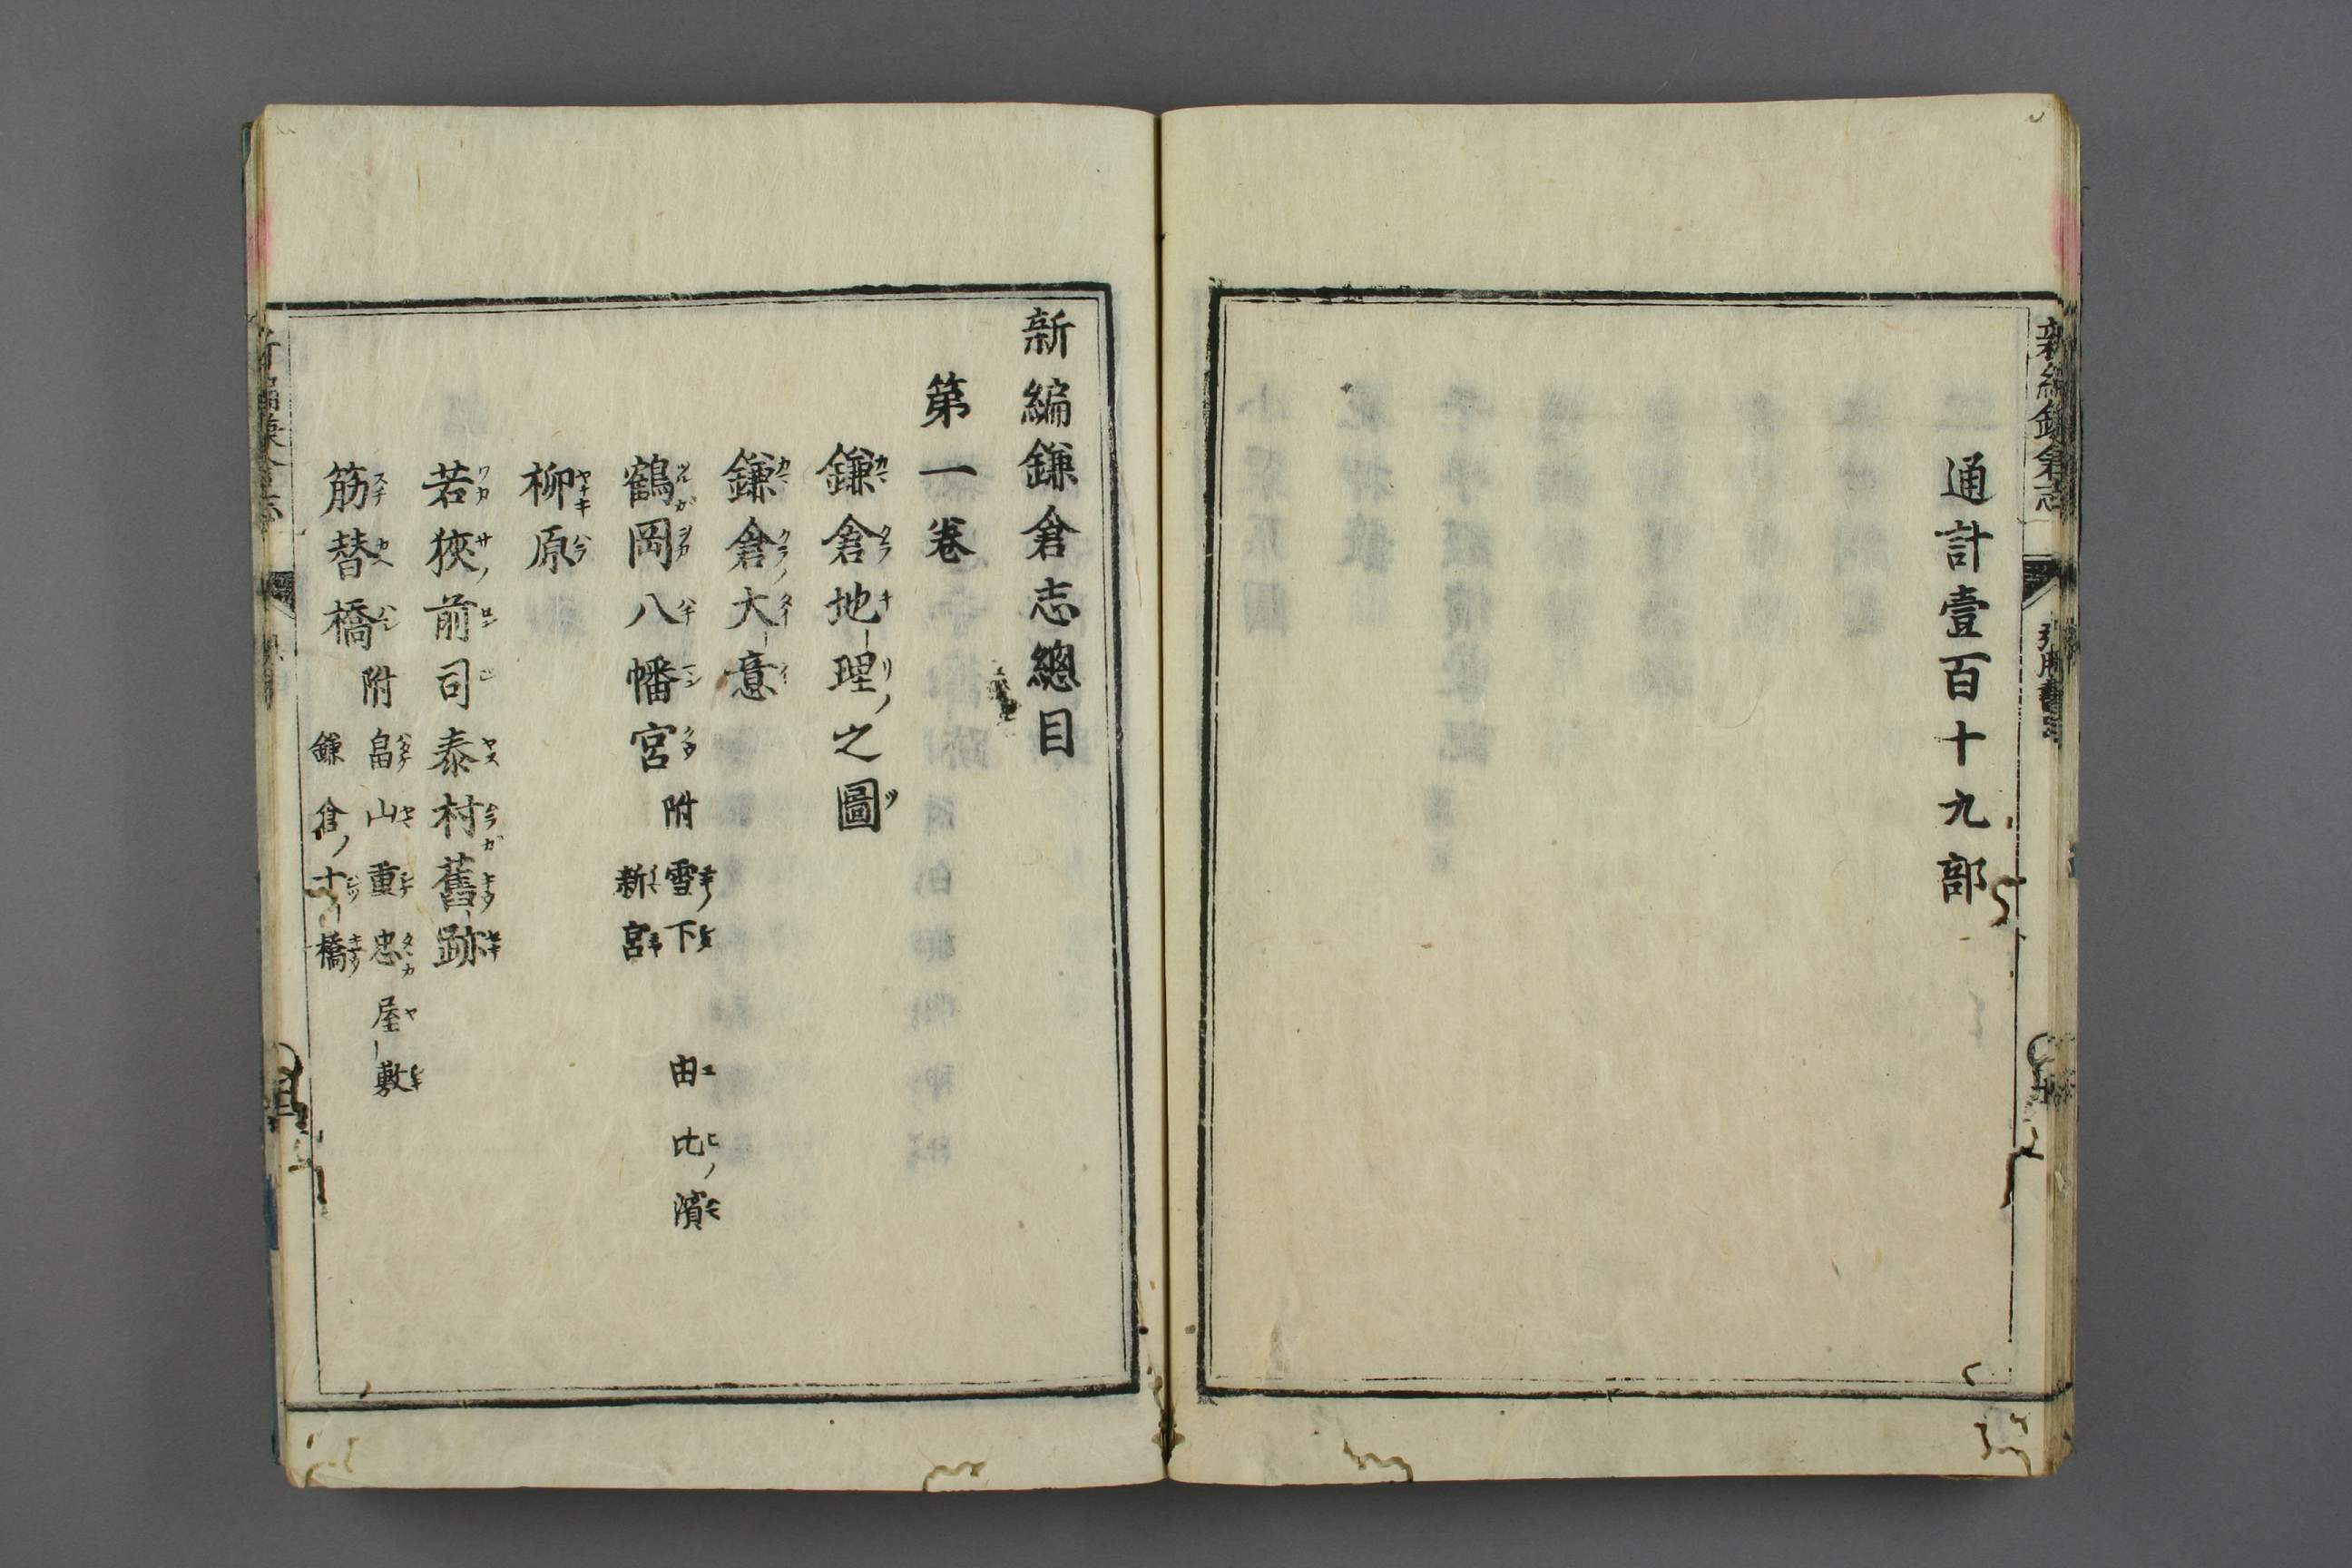 通計壹百十九部
新編鎌倉志
新編鎌倉志總目
第一卷
鎌倉地理之圖
鎌倉大意
鶴岡八幡宮 附 雪下 由比濱
新宮
柳原
若狹前司泰村舊跡
筋替橋 附 畠山重忠屋敷
鎌倉十橋